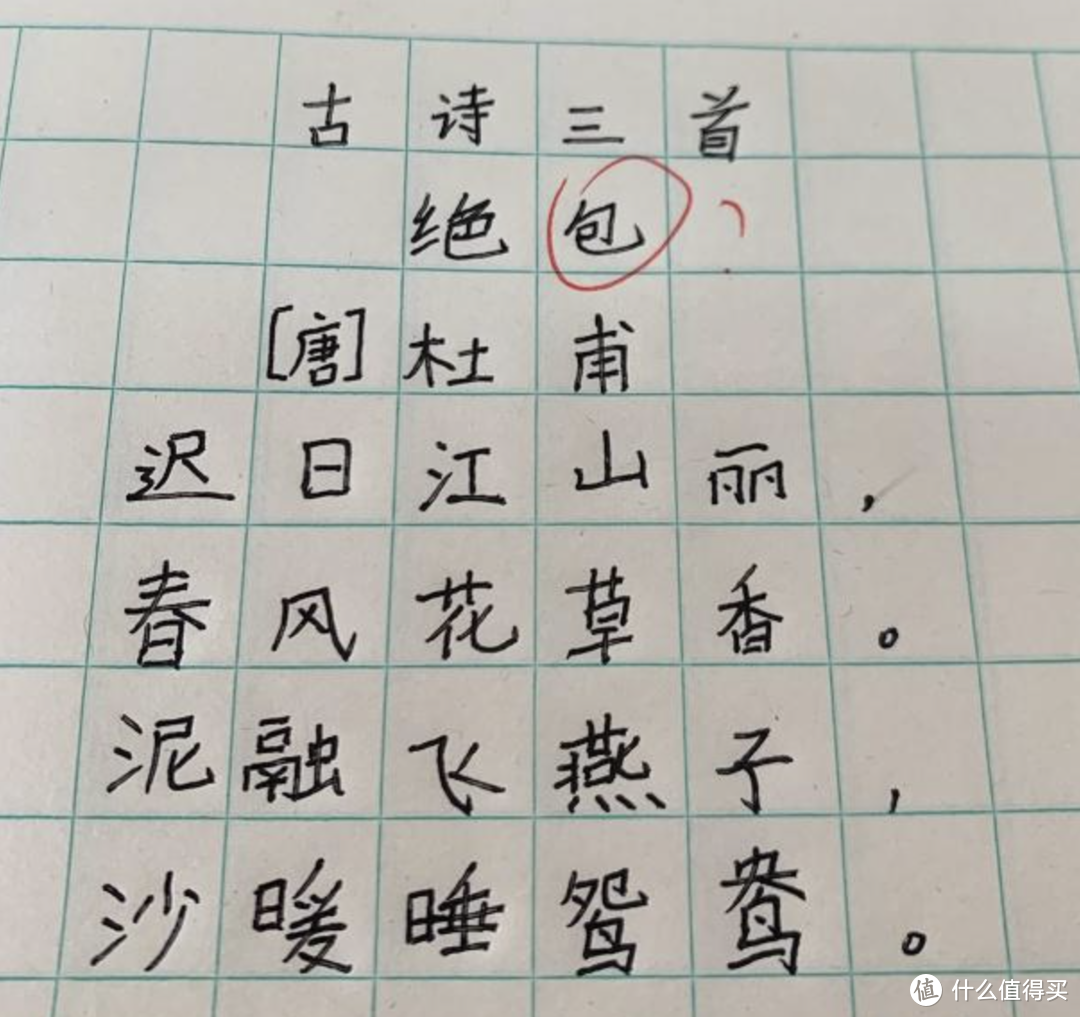 古诗三首
绝包?
[唐]杜甫
迟日江山丽,
春风花草香。
泥融飞燕子,
沙暖睡鸳鸯。
值 什么值得买